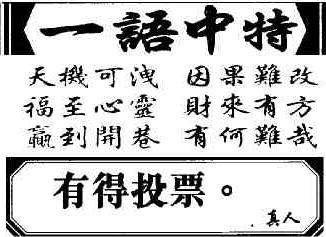 一語中特
天機可洩 因果難改
福至心靈 財來有方
贏到開巷 有何難哉
有得投票。
．真人